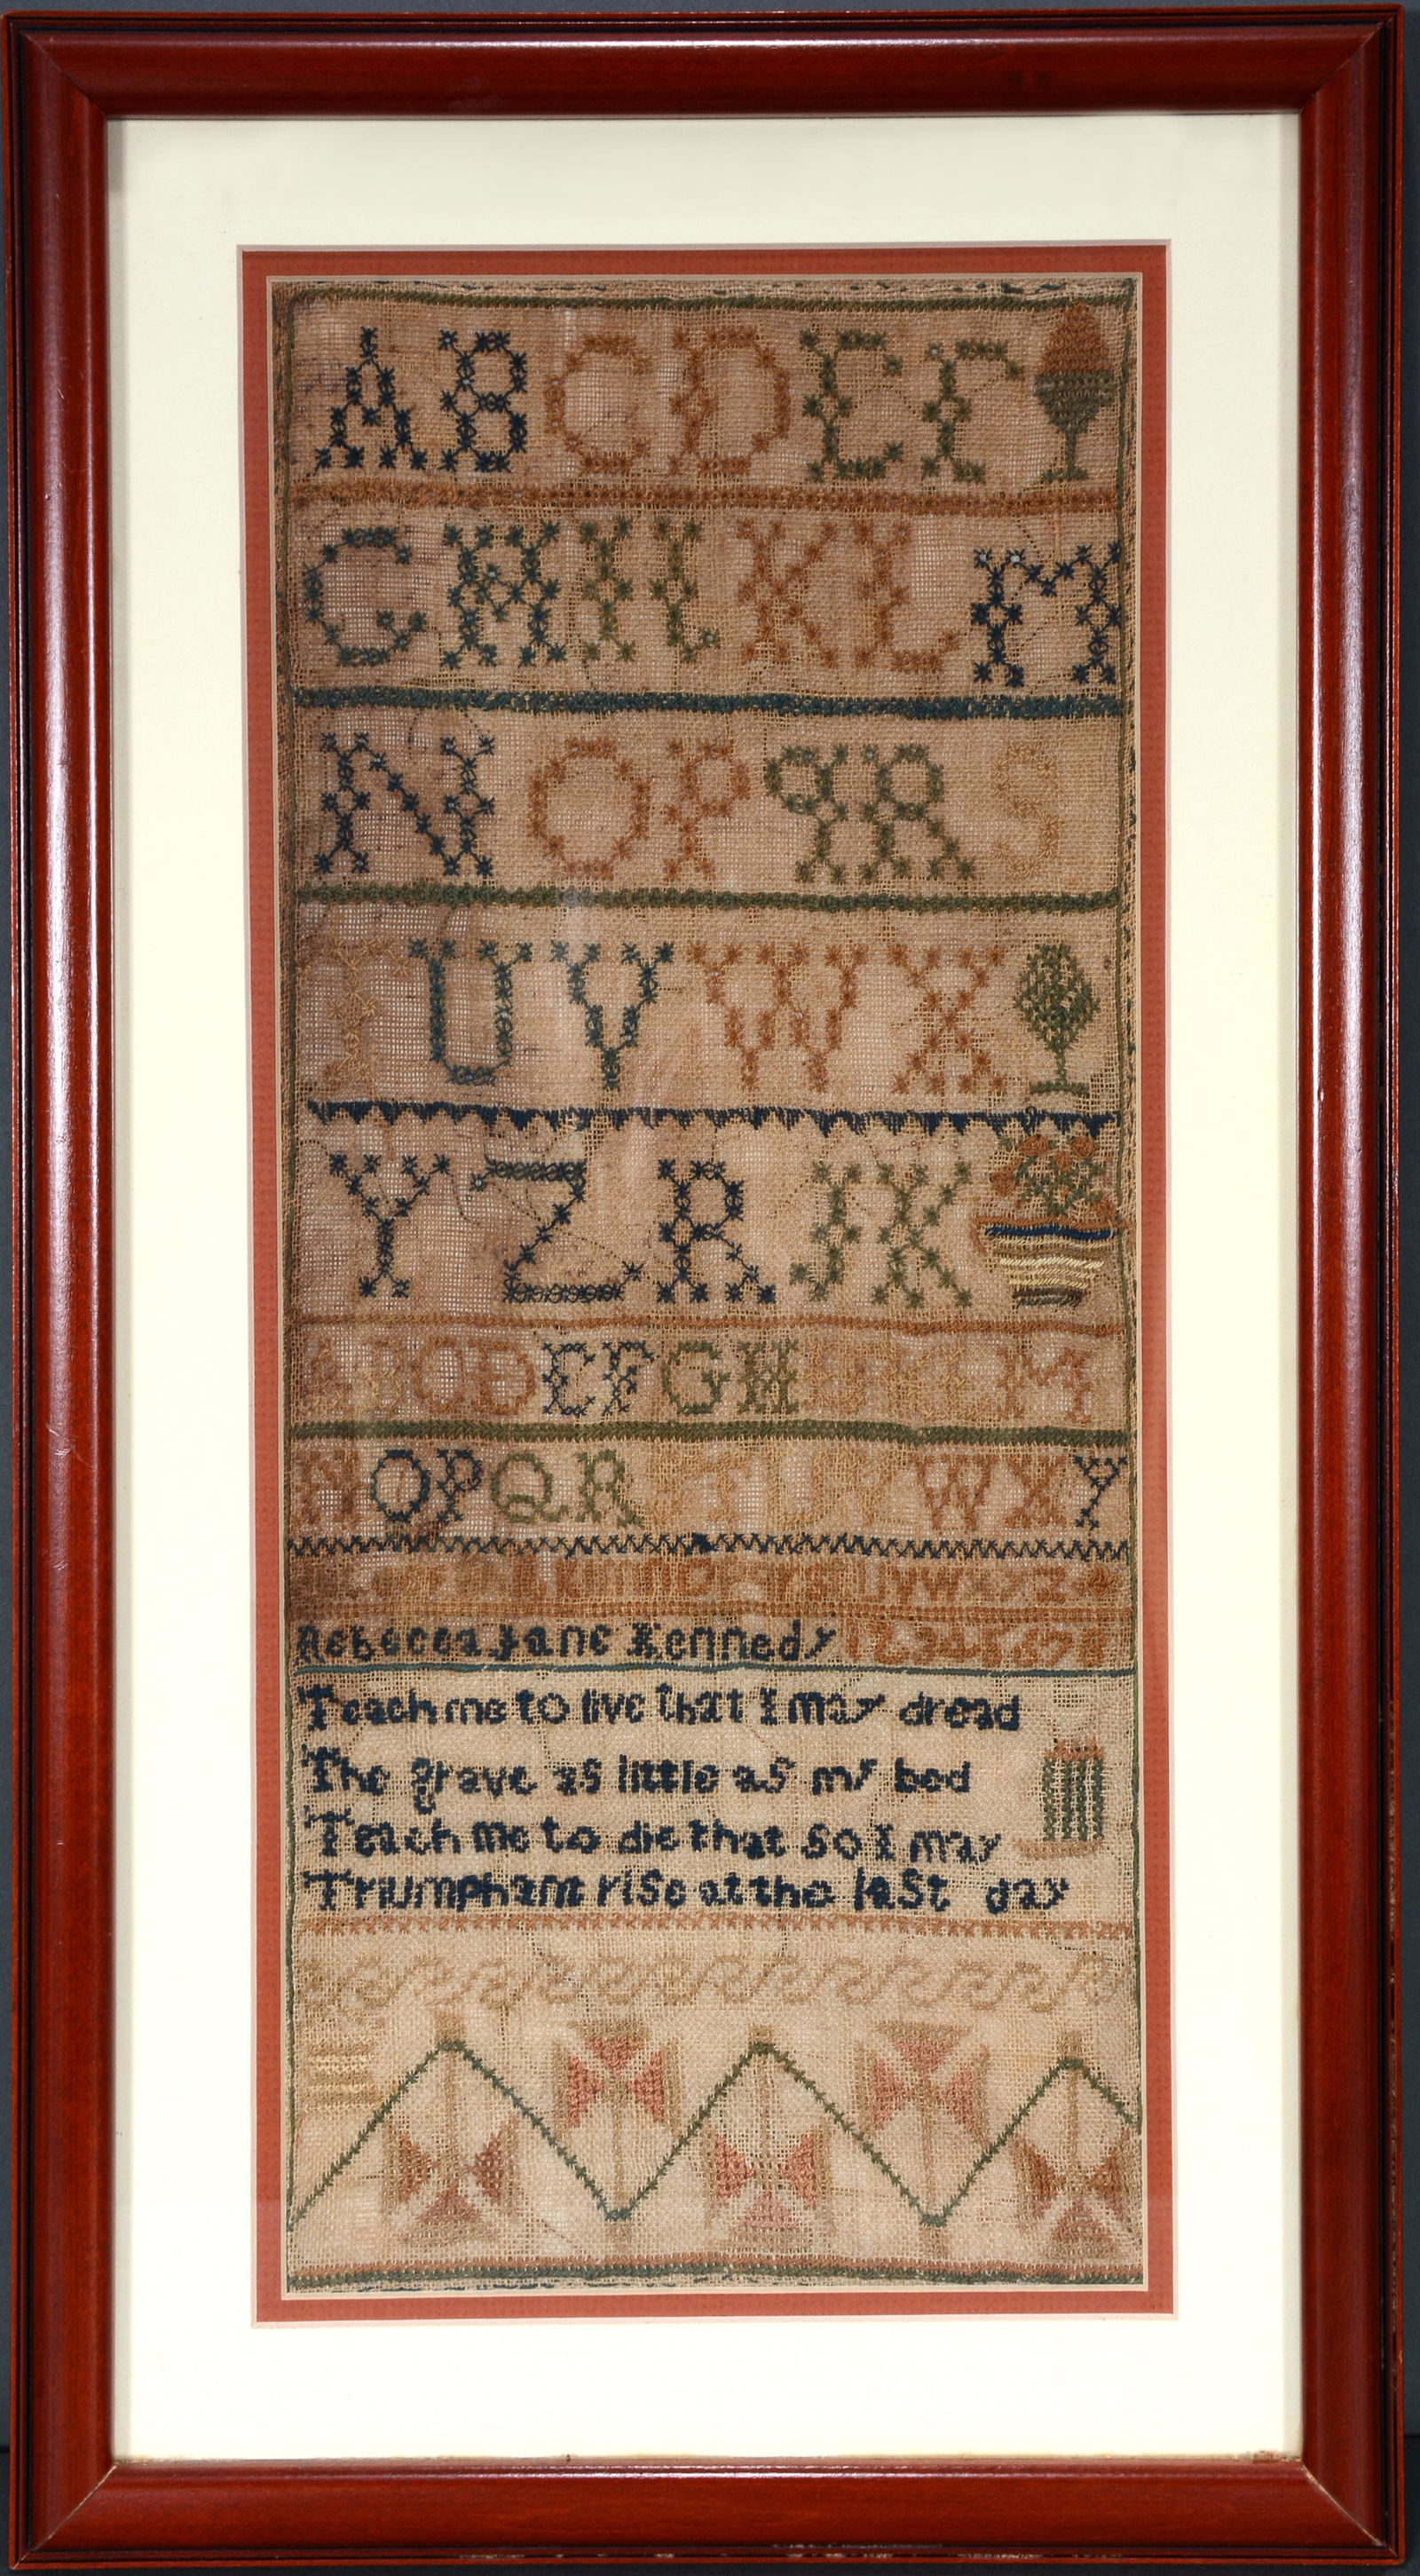 A B C D E F
G H I J K L M
N O P q R S
T U V W X
Y Z R J K
A B C D E F G H M
N O P Q R T U W X Y
w x y z
Rebecca Jane Kennedy 12345678
Teach me to live that I may dread
The grave as little as my bed
Teach me to die that so I may
Triumphant rise at the last day